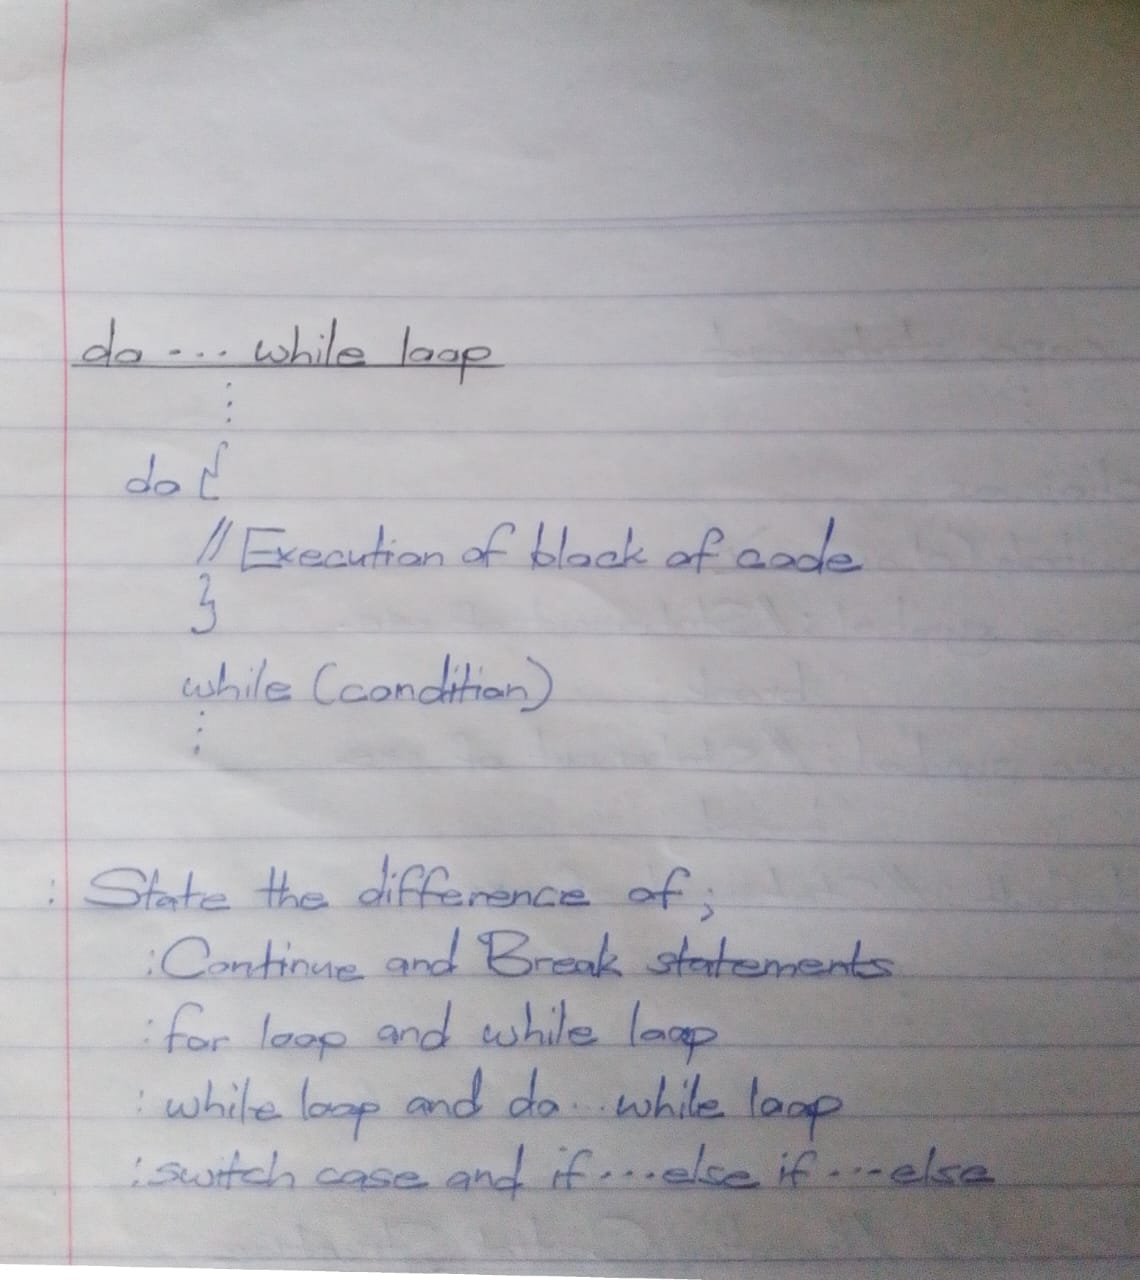 do .... while loop
:
do {
// Execution of block of code
}
while (condition)
:
: State the difference of;
: Continue and Break statements
: for loop and while loop
: while loop and do...while loop
: switch case and if...else if...else